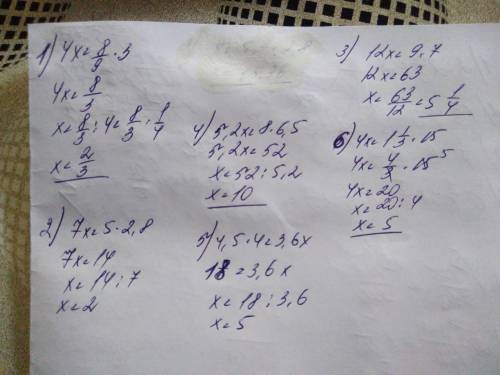 1) 4x = 8/9 · 3
4x = 8/3
x = 8/3 : 4 = 8/3 · 1/4
x = 2/3
2) 7x = 5 · 2,8
7x = 14
x = 14 : 7
x = 2
4) 5,2x = 8 · 6,5
5,2x = 52
x = 52 : 5,2
x = 10
5) 4,5 · 4 = 3,6x
18 = 3,6x
x = 18 : 3,6
x = 5
3) 12x = 9 · 7
12x = 63
x = 63/12 = 5 1/4
6) 4x = 1 1/3 · 15
4x = 4/3 · 15 5
4x = 20
x = 20 : 4
x = 5